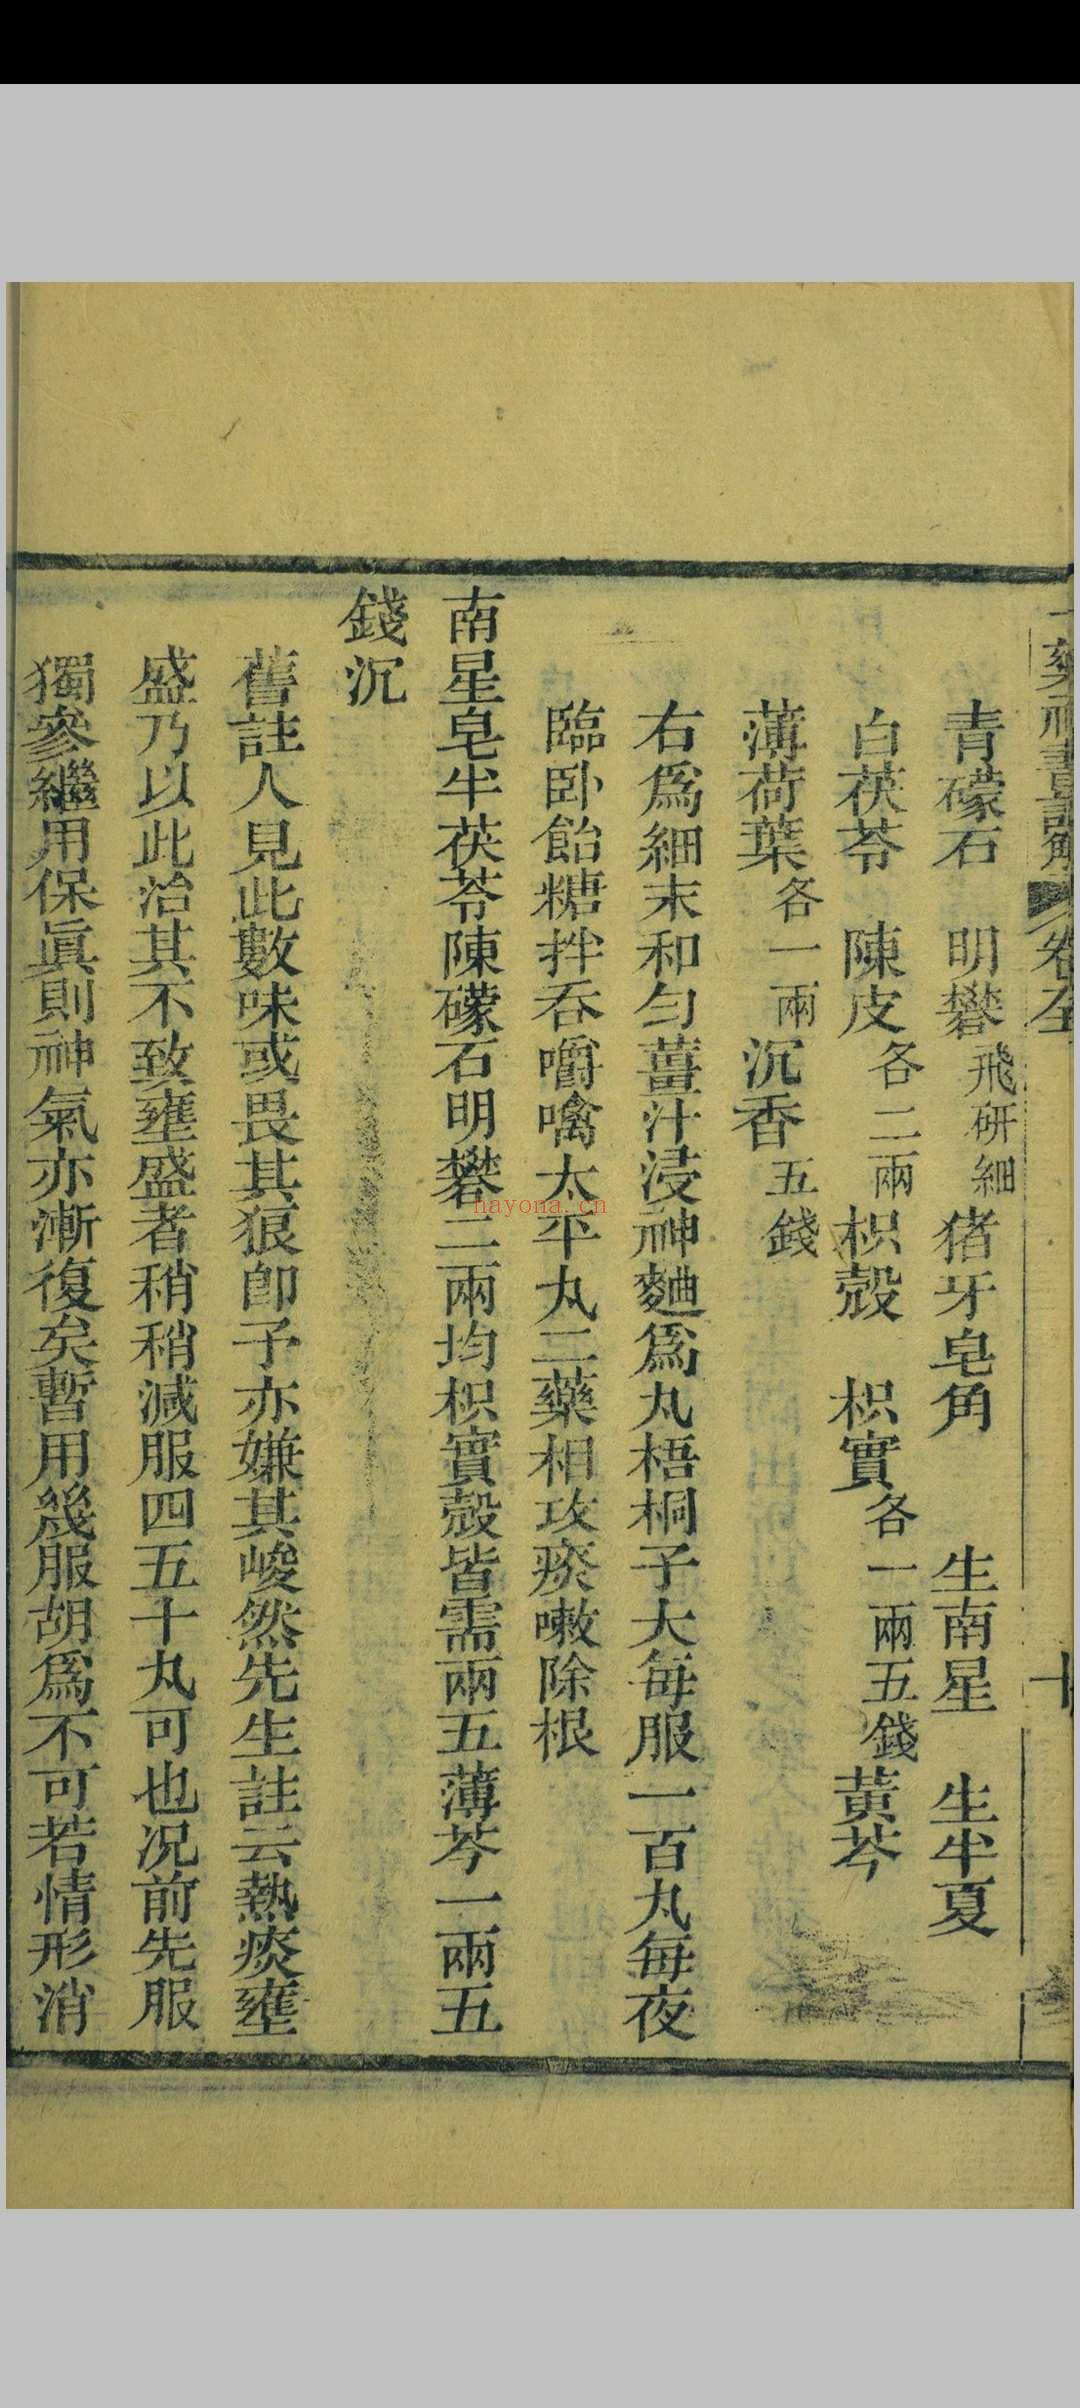 十藥神書註解 卷全 十
青礞石 明礬飛研細 猪牙皂角 生南星 生半夏
白茯苓 陳皮各二兩 枳殼 枳實各一兩五錢 黃芩
薄荷葉各一兩 沉香五錢
右爲細末和勻薑汁浸神麯爲丸梧桐子大每服一百丸每夜
臨卧飴糖拌吞嚼噙太平丸二藥相攻痰嗽除根
南星皂半茯苓陳礞石明礬二兩均枳實殼皆需兩五薄芩一兩五
錢沉
舊註人見此數味或畏其狼卽予亦嫌其峻然先生註云熱痰壅
盛乃以此治其不致壅盛者稍稍減服四五十丸可也况前先服
獨參繼用保眞則神氣亦漸復矣暫用幾服胡爲不可若情形消
hayona.cn